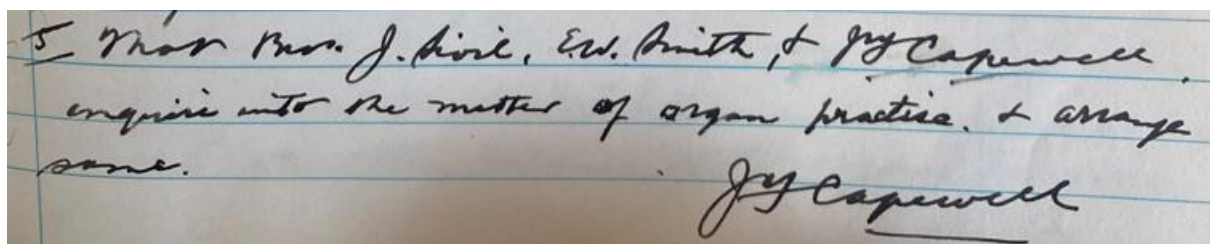 5 That Bros. J. Sivil, E.W. Smith, & JY Capewell.
enquire into the matter of organ practise. & arrange
same.
JY Capewell